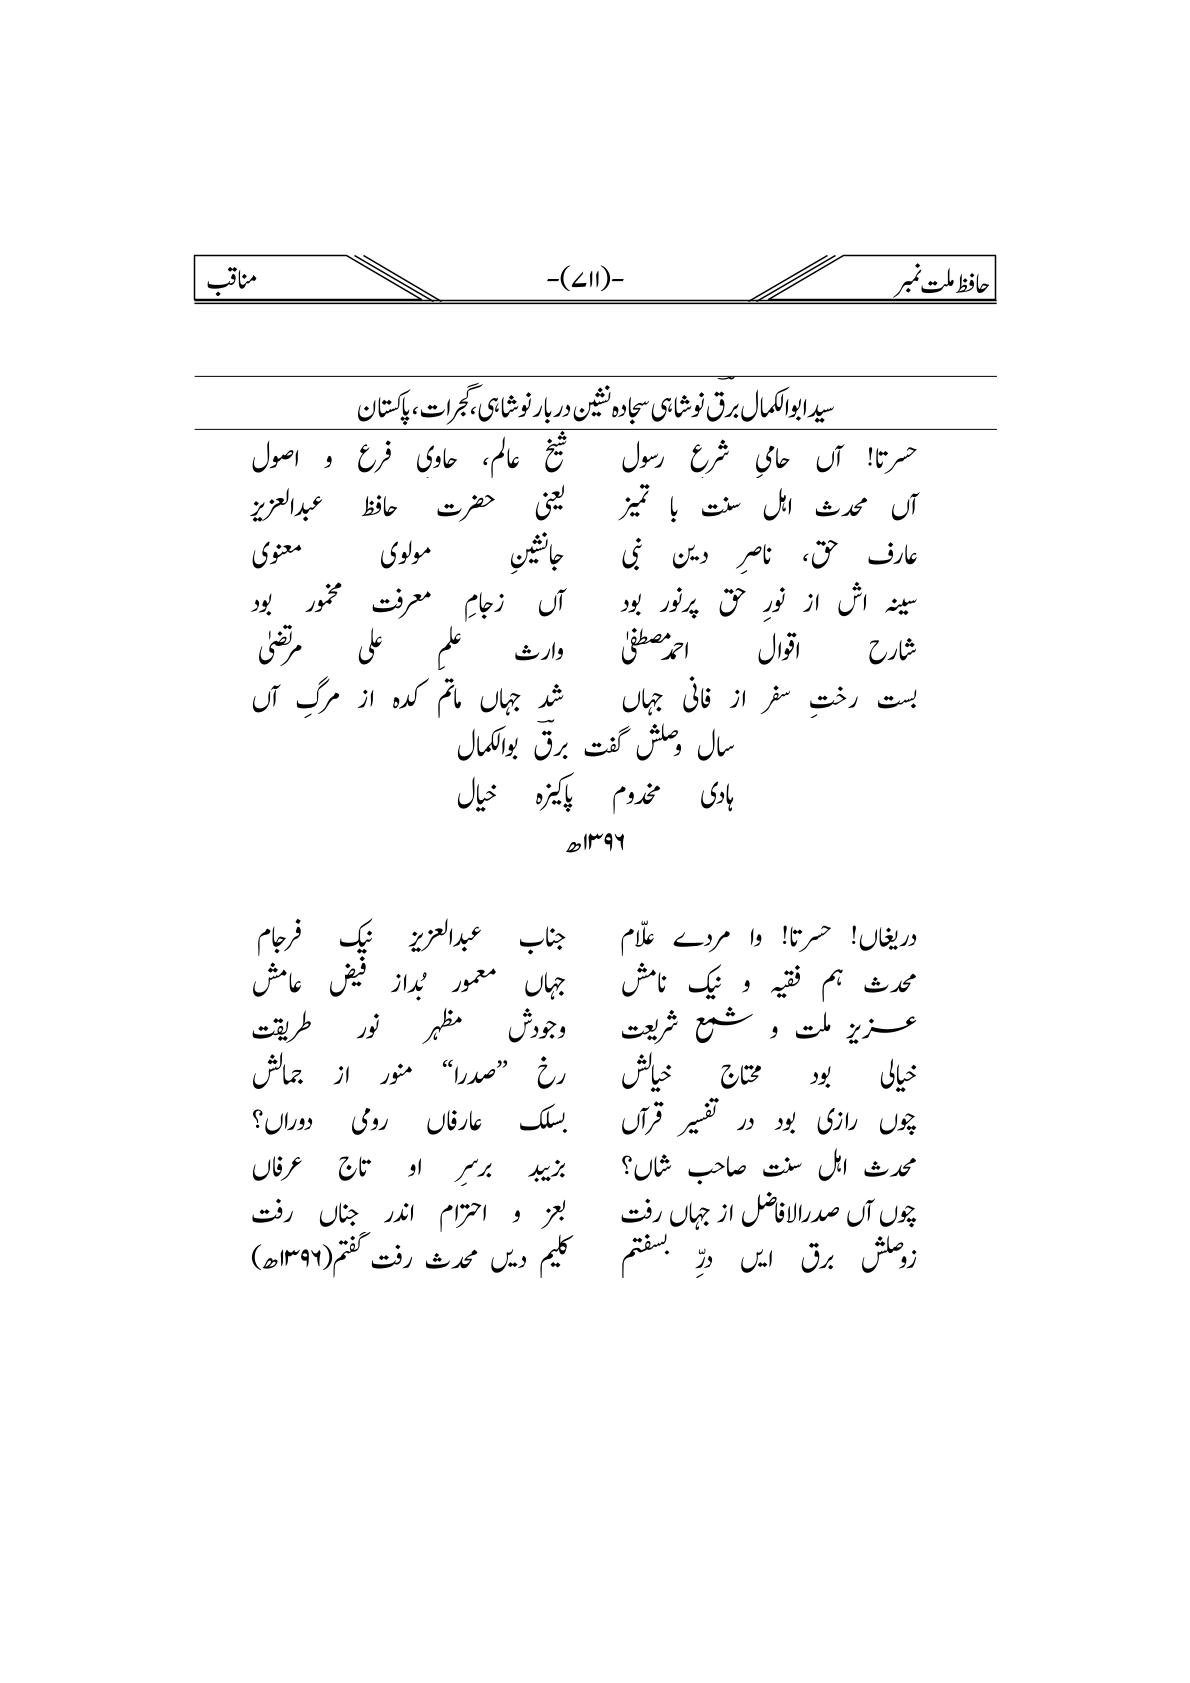 حافظ ملت نمبر -(۷۱۱)- مناقب
سید ابوالکمال برقؔ نوشاہی سجادہ نشین دربار نوشاہی، گجرات، پاکستان
حسرتا! آں حامیِ شرعِ رسول شیخ عالم، حاویِ فرع و اصول
آں محدث اہل سنت با تمیز یعنی حضرت حافظ عبدالعزیز
عارف حق، ناصرِ دین نبی جانشینِ مولوی معنوی
سینہ اش از نورِ حق پرنور بود آں زجامِ معرفت مخمور بود
شارح اقوال احمدمصطفیٰ وارث علمِ علی مرتضیٰ
بست رختِ سفر از فانی جہاں شد جہاں ماتم کدہ از مرگِ آں
سال وصلش گفت برقؔ بوالکمال
ہادی مخدوم پاکیزہ خیال
۱۳۹۶ھ
دریغاں! حسرتا! وا مردے علّام جناب عبدالعزیز نیک فرجام
محدث ہم فقیہ و نیک نامش جہاں معمور بُداز فیض عامش
عزیز ملت و شمع شریعت وجودش مظہر نور طریقت
خیالی بود محتاج خیالش رخ ”صدرا“ منور از جمالش
چوں رازی بود در تفسیر قرآں بسلک عارفاں رومی دوراں؟
محدث اہل سنت صاحب شاں؟ بزیبد برسرِ او تاج عرفاں
چوں آں صدرالافاضل از جہاں رفت بعز و احترام اندر جناں رفت
زوصلش برق ایں درِّ بسفتم کلیم دیں محدث رفت گفتم(۱۳۹۶ھ)